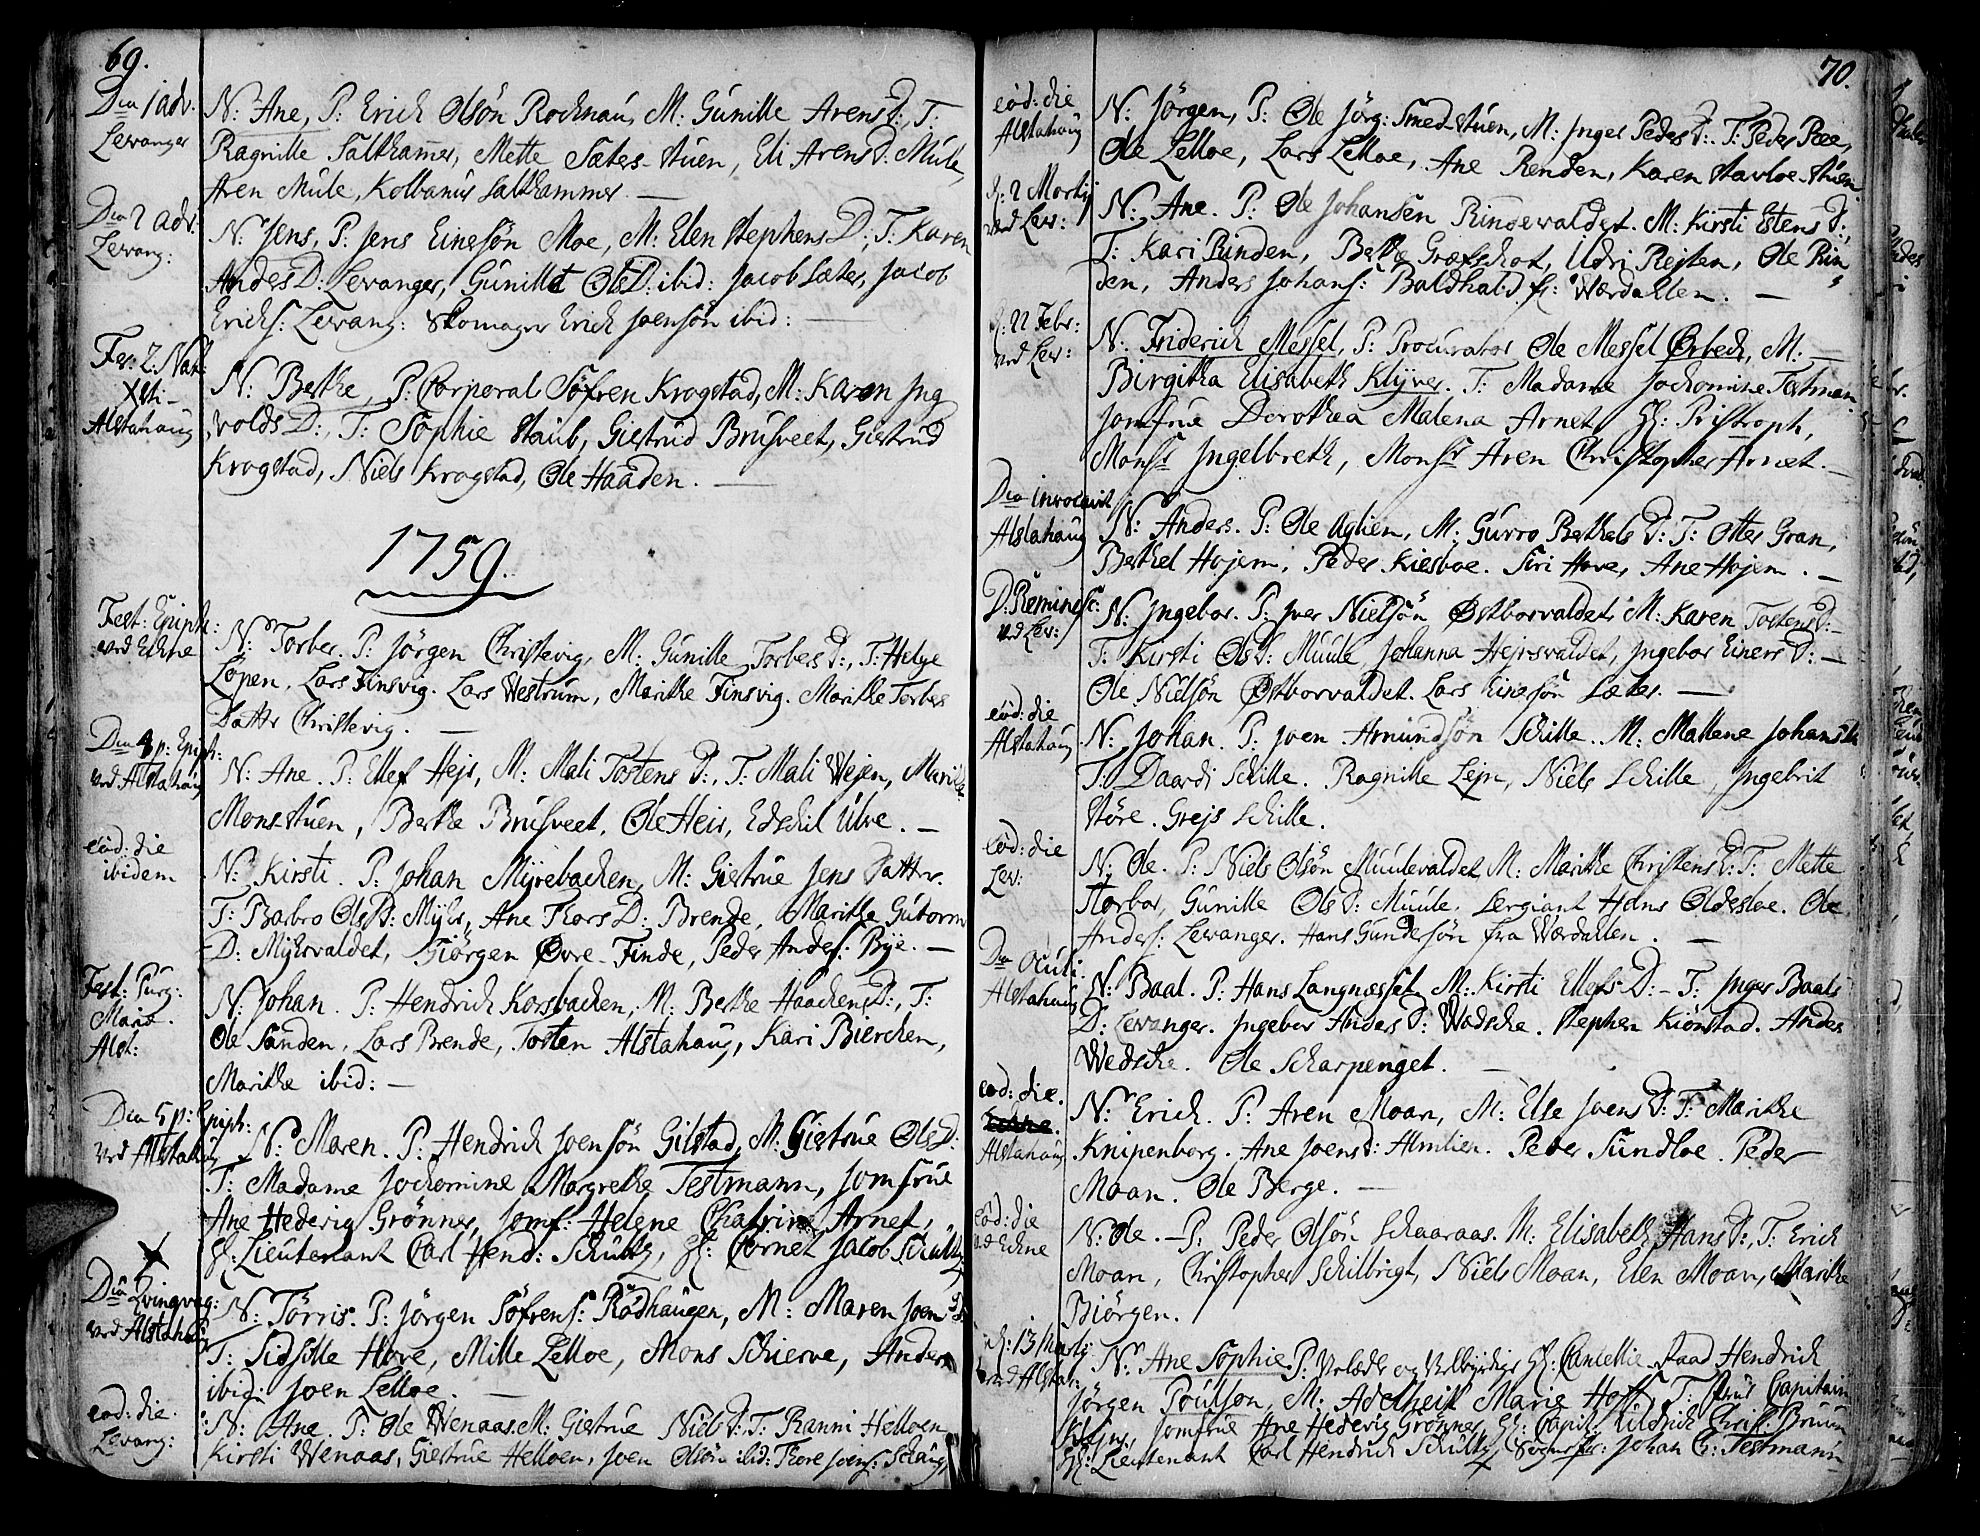 69.
Dca 1 adv.
Levanger
N: Ane, P: Erich Olsön Rochnau, M: Gunille Arens D:, T:
Ragnille Saltkammer, Mette Sæter-stuen, Eli Arens D: Mule,
Aren Mule, Kolbanus Saltkammer. —
Dca 2 adv:
Levang:
N: Jens, P: Jens Einesön Moe, M: Elen Stephens D:, T: Karen
Anders D: Levanger, Gunille Ols D: ibid: Jacob Sæter, Jacob
Erichs: Levang: Skomager Erich Joensön ibid: —
Fer: 2. Nat:
Xsti —
Alstahaug
N: Berthe, P: Corporal Söfren Krogstad, M: Karen Ing
volds D:, T: Sophie Staub, Giertrud Brusveet, Giertrud
Krogstad, Niels Krogstad, Ole Haaden. —
1759.
Fest: Epiph:
ved Echne
N: Torber. P: Jörgen Christevig, M: Gunille Torbers D:, T: Helge
Lopen, Lars Finsvig. Lars Westrum, Marithe Finsvig. Marithe Torbers
Datter Christevig. —
Dca 4 p: Epiph:
ved Alstahaug
N: Ane. P: Ellef Hejs, M: Mali Tostens D:, T: Mali Wejen, Marithe
Mons-stuen, Berthe Brusveet, Ole Heis, Edschil Ulve. —
eod: die
ibidem
N: Kirsti. P: Johan Myrebachen, M: Giertrue Jens Datter.
T: Barbro Ols D: Myhr, Ane Thors D: Brende, Marithe Gutorm
D: Myhrvaldet, Giörgen Øvre-Finde, Peder Anders: Bye. —
Fest: Purg:
Mariæ.
Alst:
N: Johan. P: Hendrich Korsbachen, M: Berthe Haachens D:, T:
Ole Sanden, Lars Brende, Tosten Alstahaug, Kari Bierchen,
Marithe ibid: —
Dca 5 p: Epiph:
ved Alstahaug
N: Maren. P: Hendrich Joensön Gilstad, M: Giertrue Ols D:
T: Madame Jochomine Margrethe Testmann, Jomfrue
Ane Hedevig Grønner, Jomf: Helene Chatrine Arnet,
Hr: Lieutenant Carl Hend: Schultz, Hr: Cornet Jacob Schultz
Dca Qvinqvag:
ved Alstahaug
N: Törris. P: Jörgen Söfrens: Rödhaugen, M: Maren Joens D:
T: Sidsille Hove, Mille Lelloe, Mons Schierve, Anders
ibid: Joen Lelloe. —
eod: die.
Levang:
N: Ane. P: Ole Wenaas. M: Giertrue Niels D: T: Ranni Helloen
Kirsti Wenaas, Giertrue Helloen, Joen Olsön ibid: Thore Joens:
70.
eod: die
Alstahaug
N: Jörgen, P: Ole Jörg: Smed-stuen, M: Inger Peders D: T: Peder Ree,
Ole Lelloe, Lars Lelloe, Ane Renden, Karen Stavloe-stuen
d: 2 Martij
ved Lev:
N: Ane. P: Ole Johansen Rindevaldet. M: Kirsti Estens D:,
T: Kari Rinden, Berthe Græfschot, Udri Rejten, Ole Rin
den, Anders Johans: Baldhald fr: Wærdahlen. —
d: 22 Febr:
ved Lev:
N: Friderich Messel, P: Procurator Ole Messel Ørbech, M: —
Birgitha Elisabeth Klyver. T: Madame Jochomine Testman
Jomfrue Dorothea Malena Arnet, Hr: Pristroph,
Monsr Ingelbreth, Monsr Aren Christopher Arnet. —
Dca invocavit
Alstahaug
N: Anders. P: Ole Aglien, M: Gurro Berthels D: T: Otter Gran,
Berthel Hojem, Peder Kiesboe. Siri Hove, Ane Hojem. —
D: Reminesc:
ved Lev:
N: Ingebor. P: Iver Nielsön Østborvaldet M: Karen Tostens D: —
T: Kirsti Ols D: Muule, Johanna Hejrsvaldet, Ingebor Einers D: —
Ole Nielsön Østborvaldet. Lars Einesön Sæter. —
eod: die
Alstahaug
N: Johan. P: Joen Amundsön Schille. M: Mallene Johans D:
T: Daardi Schille. Ragnille Lejn, Niels Schille, Ingebrit
Störe. Grejs Schille.
eod: die
Lev:
N: Ole. P: Niels Olsön Muulevaldet, M: Marithe Christens D: T: Mette
Storbor, Gunille Ols D: Muule. Sergiant Hans Oldesloe. Ole
Anders: Levanger. Hans Gundersön fra Wærdahlen. —
Dca Oculi.
Alstahaug
N: Baal. P: Hans Langnæsset, M: Kirsti Ellefs D: — T: Inger Baals
D: Levanger. Ingebor Anders D: Wedsche. Stephen Kiönstad. Anders
Wedsche. Ole Scharpenget. —
eod: die.
Alstahaug
N: Erich. P: Aren Moan, M: Else Joens D: T: Marithe
Knipenborg. Ane Joens D: Almlien. Peder Sundloe. Peder
Moan. Ole Berge. —
eod: die
ved Echne
N: Ole. — P: Peder Olsön Schaaraas. M: Elisabeth Hans D:, T: Erich
Moan, Christopher Schilbrigt, Niels Moan, Elen Moan, Marithe
Biörgen.
d: 13 Martij
ved Alstah:
N: Ane Sophie P: Velædle og Velbyrdige Hr: Cancellie-Raad Hendrich
Jörgen Poulson, M: Adelheit Marie Hoff, T: Frue Capitain
Jomfrue Ane Hedevig Grønner, Hr: Capit: Uldrich Christ: Bruun
Hr: Lieutenant Carl Hendrich Schultz, Johan C: Testmann